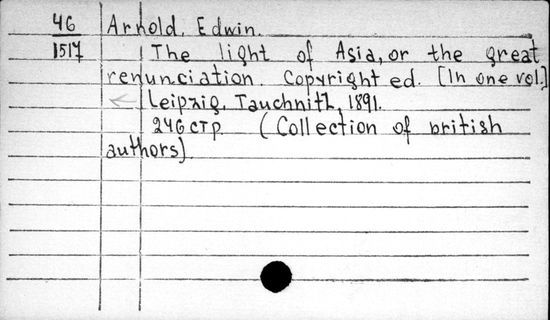 46 Arnold, Edwin.
1517 The light of Asia, or the great
renunciation. Copyright ed. [In one vol.]
Leipzig, Tauchnitz, 1891.
246 стр (Collection of british
authors).